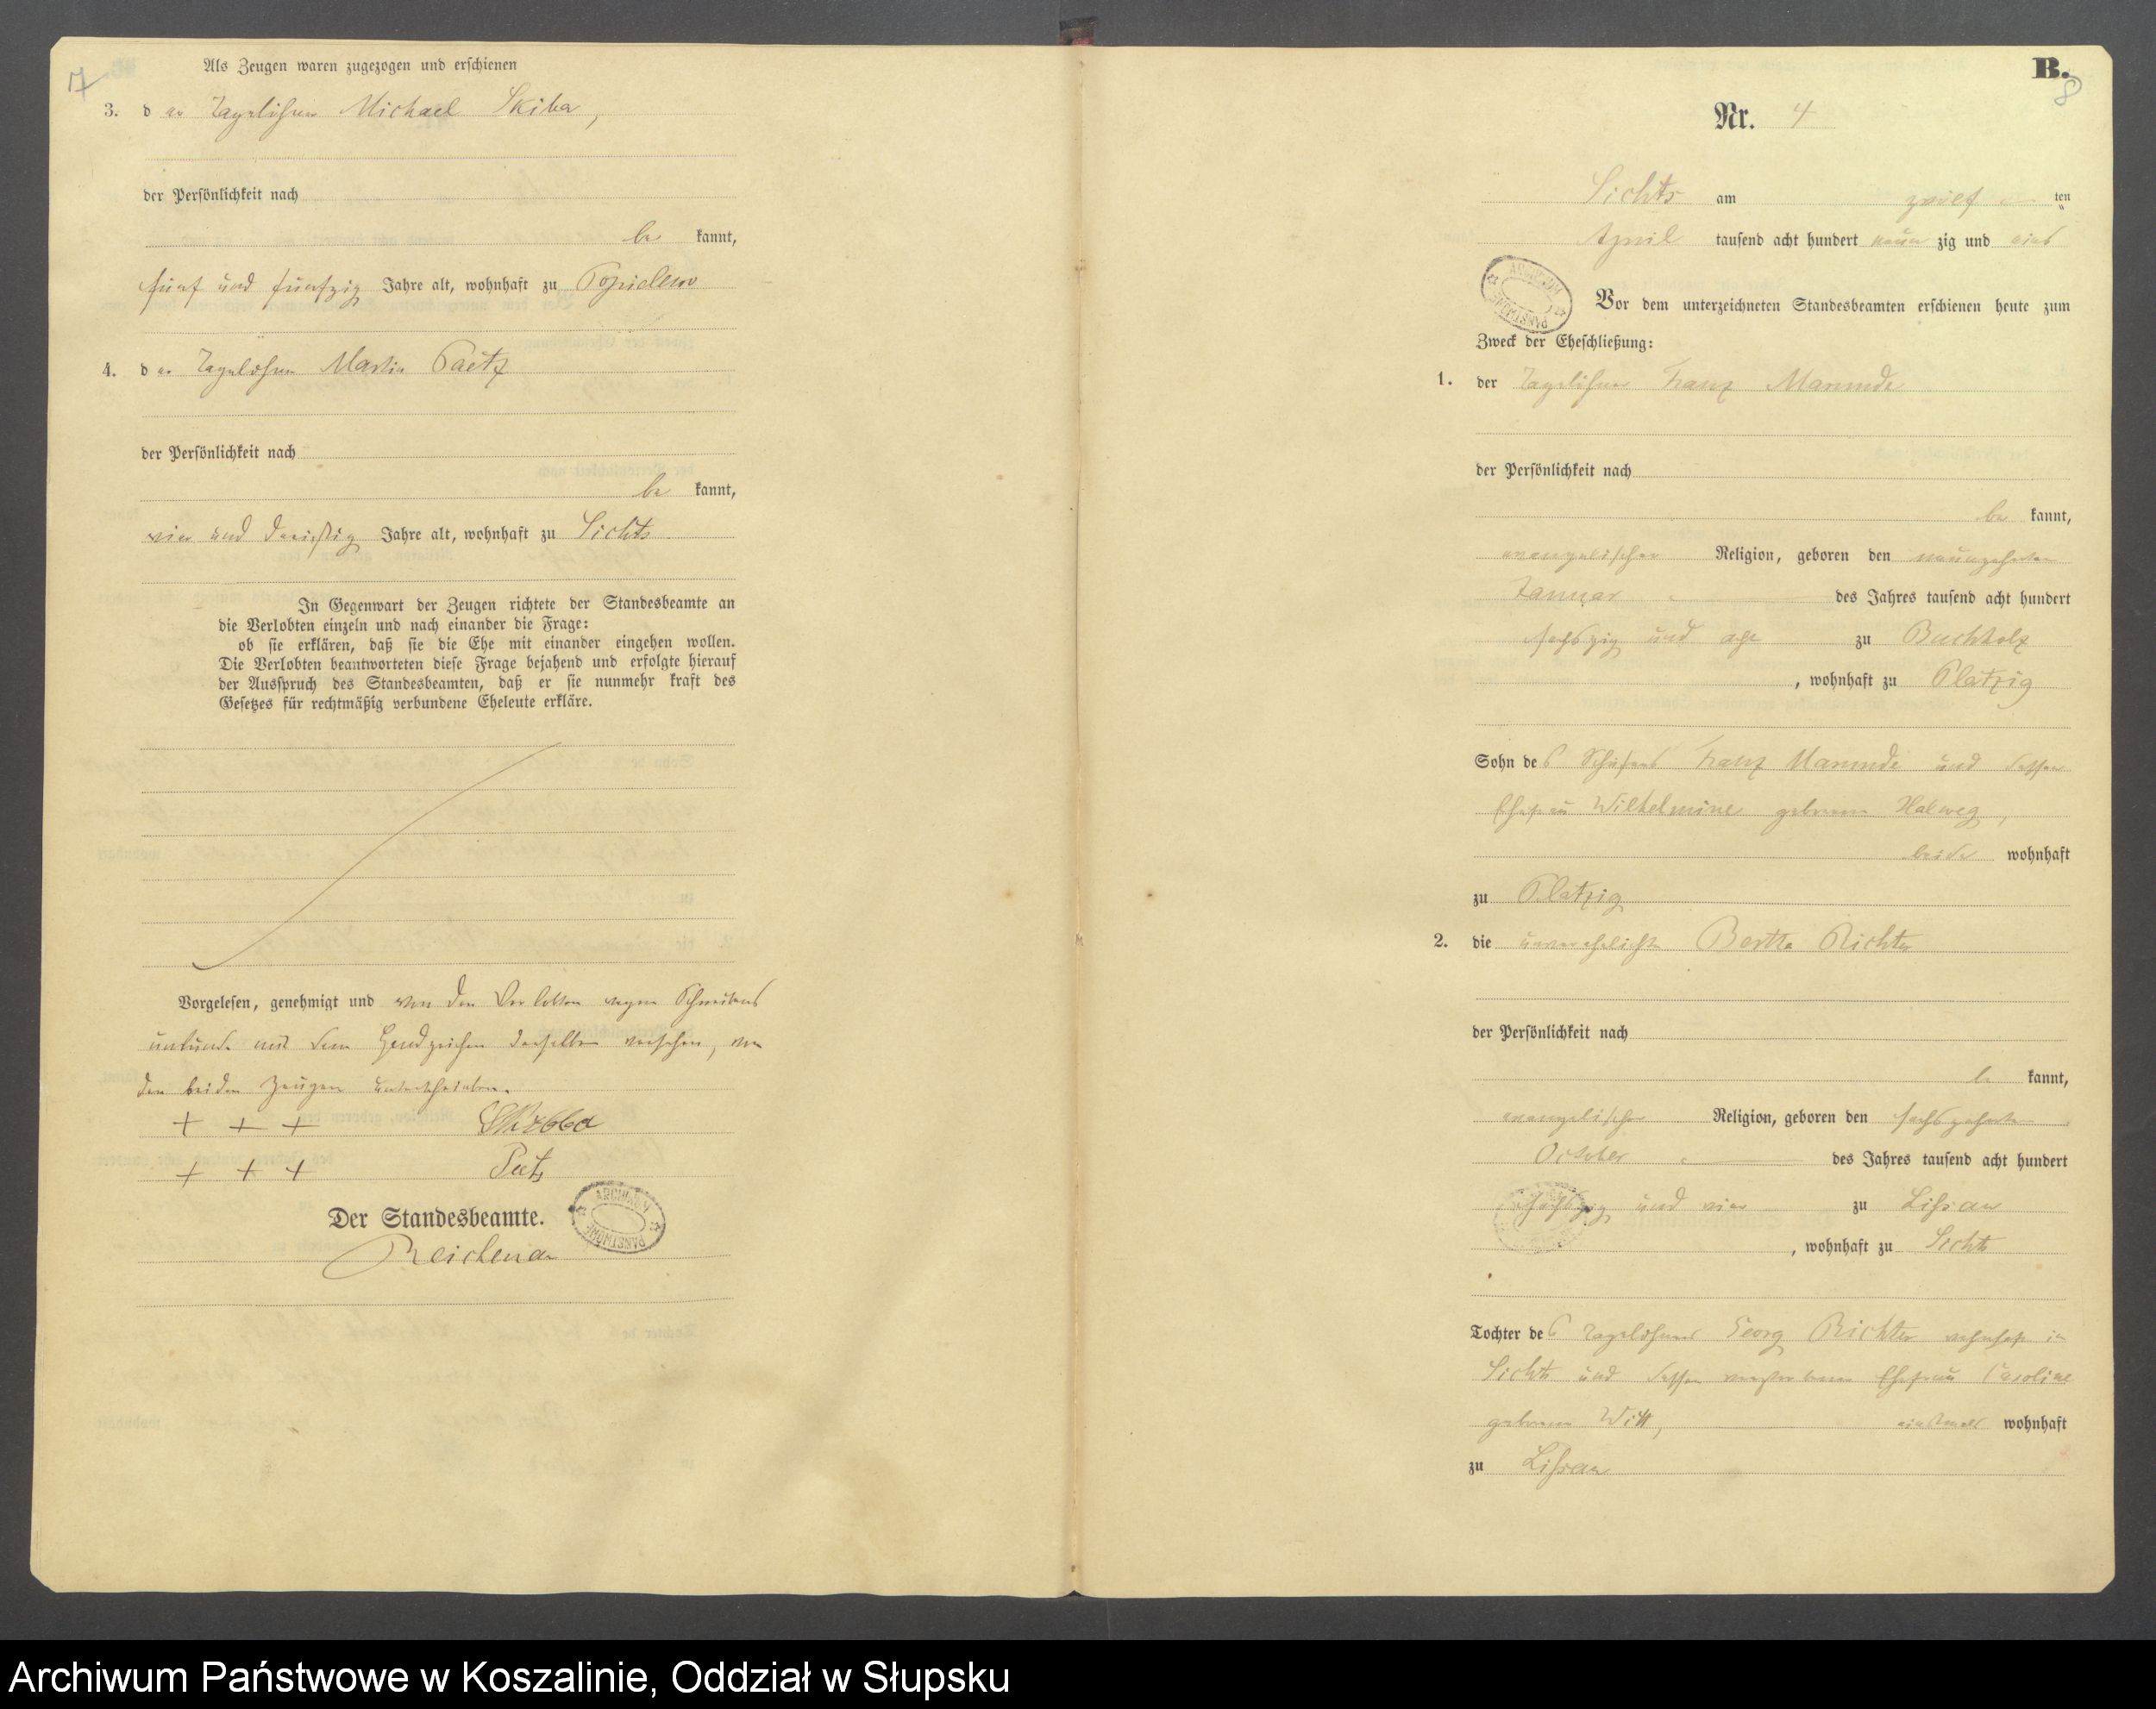 17
Als Zeugen waren zugezogen und erschienen
3. der Tagelöhner Michael Skiba,
der Persönlichkeit nach
be kannt,
fünf und fünfzig Jahre alt, wohnhaft zu
4. der Tagelöhner Martin Paetz
der Persönlichkeit nach
be kannt,
vier und dreißig Jahre alt, wohnhaft zu Sichts
In Gegenwart der Zeugen richtete der Standesbeamte an
die Verlobten einzeln und nach einander die Frage:
ob sie erklären, daß sie die Ehe mit einander eingehen wollen.
Die Verlobten beantworteten diese Frage bejahend und erfolgte hierauf
der Ausspruch des Standesbeamten, daß er sie nunmehr kraft des
Gesetzes für rechtmäßig verbundene Eheleute erkläre.
Vorgelesen, genehmigt und von den Verlobten wegen Schreibens
unkunde mit dem Handzeichen derselben versehen, von
den beiden Zeugen unterschrieben.
+ + +
+ + +
Der Standesbeamte.
Reichenau
ARCHIWUM PAŃSTWOWE
B.
8
Nr. 4
Sichts am zwölf ten
April tausend acht hundert neun zig und eins
ARCHIWUM PAŃSTWOWE
Vor dem unterzeichneten Standesbeamten erschienen heute zum
Zweck der Eheschließung:
1. der Tagelöhner Franz Marunde
der Persönlichkeit nach
be kannt,
evangelischer Religion, geboren den neunzehnten
Januar des Jahres tausend acht hundert
sechszig und acht zu Buchholz
, wohnhaft zu Platzig
Sohn des Schäfers Franz Marunde und dessen
Ehefrau Wilhelmine geborenen Halweg,
beide wohnhaft
zu Platzig
2. die unverehelichte Bertha Richter
der Persönlichkeit nach
be kannt,
evangelischer Religion, geboren den sechszehnten
October des Jahres tausend acht hundert
sechszig und vier zu Lissau
, wohnhaft zu Sichts
Tochter des Tagelöhners Georg Richter wohnhaft in
Sichts und dessen verstorbenen Ehefrau Caroline
geborenen Witt, wohnhaft
zu Lissau
Archiwum Państwowe w Koszalinie, Oddział w Słupsku